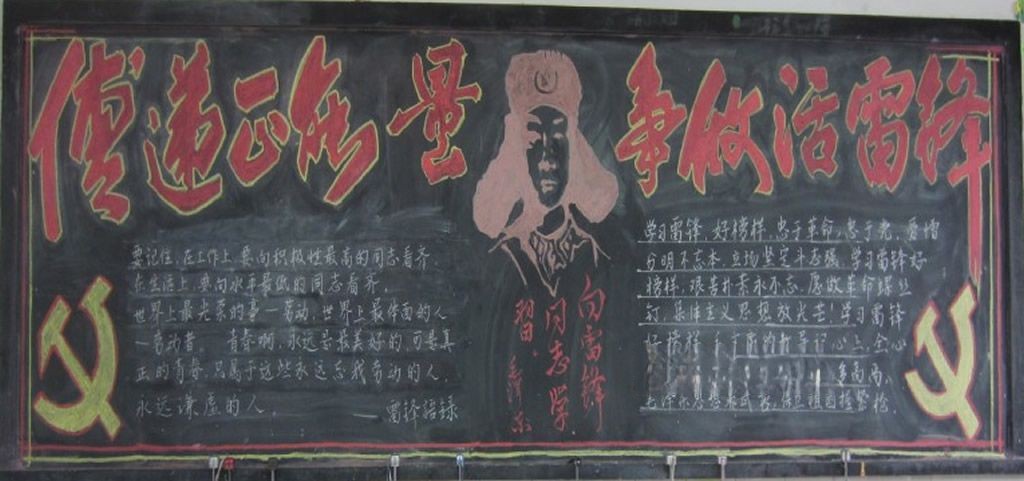 传递正能量
争做活雷锋
要记住,在工作上,要向积极性最高的同志看齐,
在生活上,要向水平最低的同志看齐。
世界上最光荣的事—劳动,世界上最体面的人
—劳动者。青春啊,永远是最美好的,可是真
正的青春,只属于这些永远力争劳动的人,
永远谦虚的人。
——雷锋语录
向雷锋
同志学
习
毛泽东
学习雷锋,好榜样,忠于革命,忠于党,爱憎
分明不忘本,立场坚定斗志强,学习雷锋好
榜样,艰苦朴素永不忘,愿做革命螺丝
钉,集体主义思想放光芒,学习雷锋
好榜样